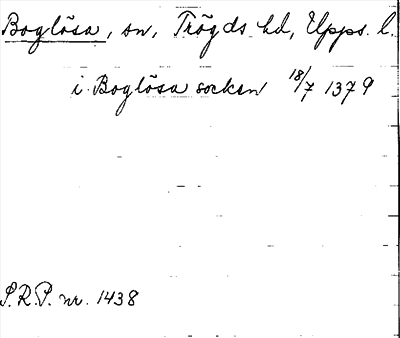 Boglösa, sn, Trögds hd, Upps. l.
i Boglösa socken 18/7 1379
S.R.P. nr. 1438